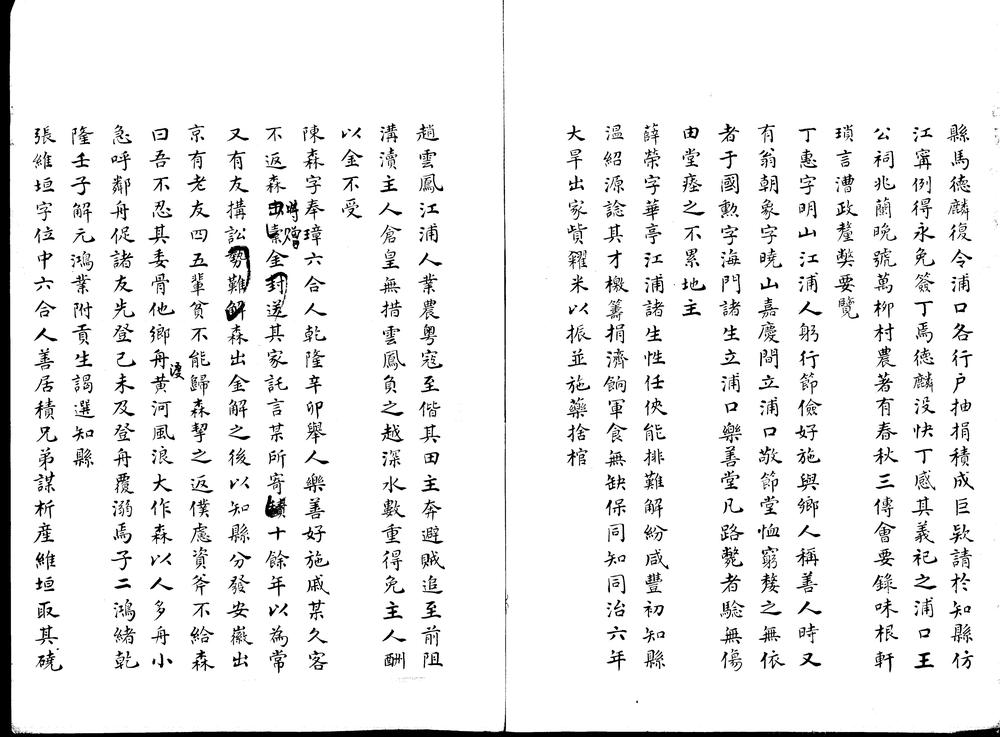 縣馬德麟復令浦口各行户抽捐積成巨欵請於知縣仿
江寗例得永免簽丁焉德麟没快丁感其義祀之浦口王
公祠兆蘭晚號萬柳村農著有春秋三傳會要錄味根軒
瑣言漕政釐獘要覽
丁惠字明山江浦人躬行節儉好施與鄉人稱善人時又
有翁朝象字曉山嘉慶間立浦口敬節堂恤窮嫠之無依
者于國勲字海門諸生立浦口樂善堂凡路斃者驗無傷
由堂瘞之不累地主
薛榮字華亭江浦諸生性任俠能排難解紛咸豐初知縣
溫紹源諗其才檄籌捐濟餉軍食無缺保同知同治六年
大旱出家貲糴米以振並施藥捨棺
趙雲鳳江浦人業農粤寇至偕其田主奔避賊追至前阻
溝瀆主人倉皇無措雲鳳負之越深水數重得免主人酬
以金不受
陳森字奉璋六合人乾隆辛卯舉人樂善好施戚某久客
不返森時贈金送其家託言某所寄十餘年以為常
又有友搆訟勢難解森出金解之後以知縣分發安徽出
京有老友四五輩貧不能歸森挈之返僕慮資斧不給森
曰吾不忍其委骨他鄉舟渡黄河風浪大作森以人多舟小
急呼鄰舟促諸友先登己未及登舟覆溺焉子二鴻緒乾
隆壬子解元鴻業附貢生謁選知縣
張維垣字位中六合人善居積兄弟謀析産維垣取其磽